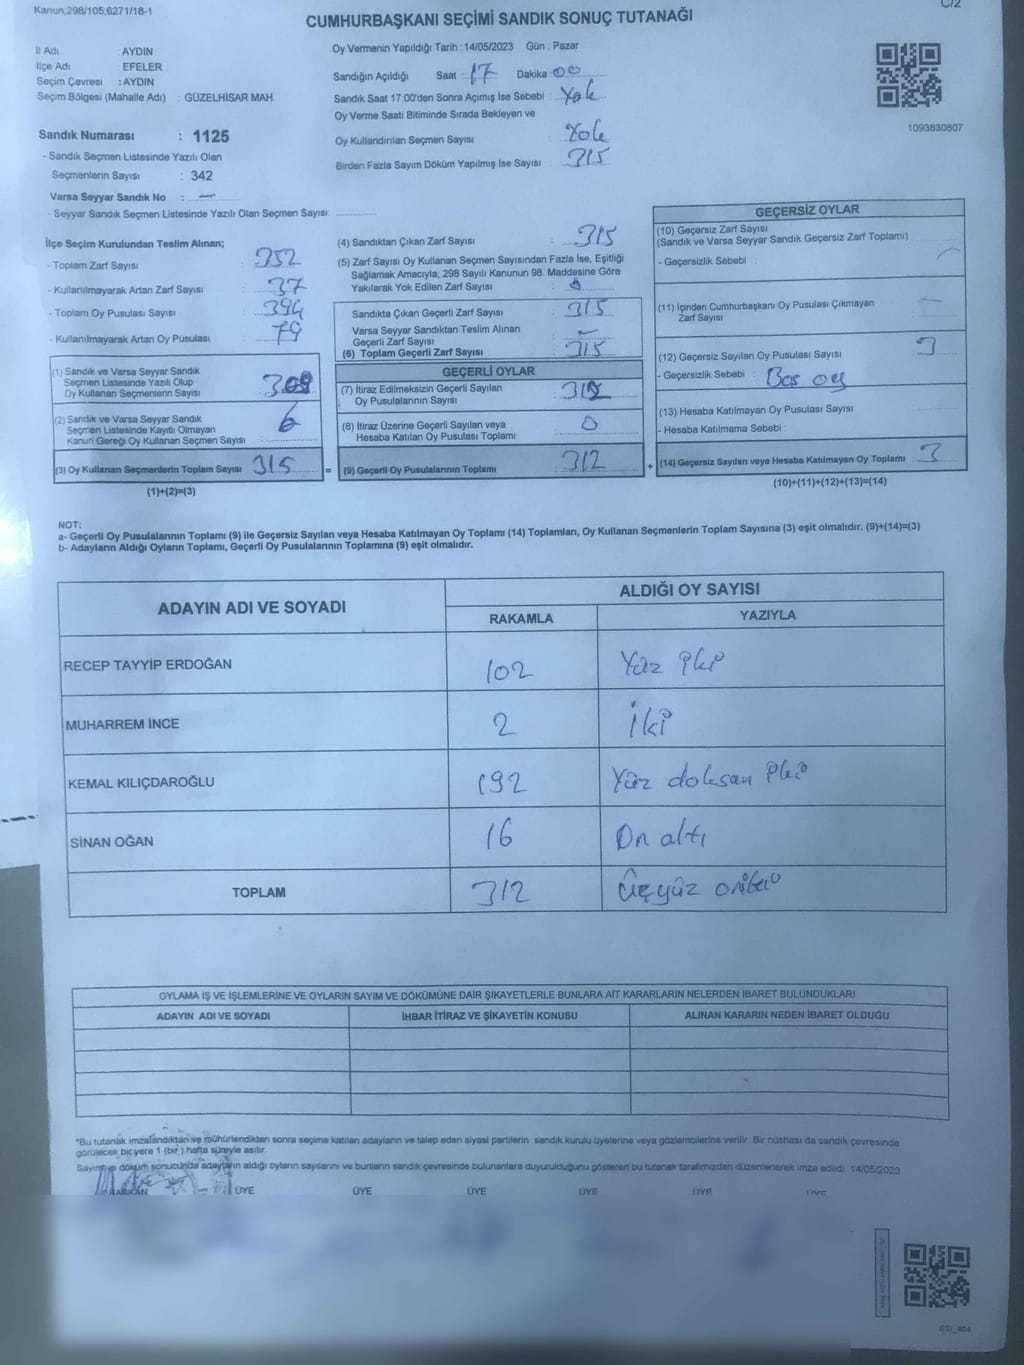 Kanun;298/105;6271/18-1
C/2
CUMHURBAŞKANI SEÇİMİ SANDIK SONUÇ TUTANAĞI
İl Adı : AYDIN
İlçe Adı : EFELER
Seçim Çevresi : AYDIN
Seçim Bölgesi (Mahalle Adı) : GÜZELHİSAR MAH.
Oy Vermenin Yapıldığı Tarih :14/05/2023 Gün : Pazar
Sandığın Açıldığı Saat : 17 Dakika 00
Sandık Saat 17:00'den Sonra Açımış İse Sebebi : Yok
Oy Verme Saati Bitiminde Sırada Bekleyen ve
Oy Kullandırılan Seçmen Sayısı : Yok
Birden Fazla Sayım Döküm Yapılmış İse Sayısı : 315
1093830807
Sandık Numarası : 1125
- Sandık Seçmen Listesinde Yazılı Olan
Seçmenlerin Sayısı : 342
Varsa Seyyar Sandık No : —
- Seyyar Sandık Seçmen Listesinde Yazılı Olan Seçmen Sayısı:
İlçe Seçim Kurulundan Teslim Alınan;
- Toplam Zarf Sayısı : 352
- Kullanılmayarak Artan Zarf Sayısı : 37
- Toplam Oy Pusulası Sayısı : 394
- Kullanılmayarak Artan Oy Pusulası : 79
(1) Sandık ve Varsa Seyyar Sandık
Seçmen Listesinde Yazılı Olup
Oy Kullanan Seçmenlerin Sayısı : 309
(2) Sandık ve Varsa Seyyar Sandık
Seçmen Listesinde Kayıtlı Olmayan
Kanun Gereği Oy Kullanan Seçmen Sayısı : 6
(3) Oy Kullanan Seçmenlerin Toplam Sayısı 315 =
(1)+(2)=(3)
(4) Sandıktan Çıkan Zarf Sayısı : 315
(5) Zarf Sayısı Oy Kullanan Seçmen Sayısından Fazla İse, Eşitliği
Sağlamak Amacıyla; 298 Sayılı Kanunun 98. Maddesine Göre
Yakılarak Yok Edilen Zarf Sayısı : 0
Sandıkta Çıkan Geçerli Zarf Sayısı : 315
Varsa Seyyar Sandıktan Teslim Alınan
Geçerli Zarf Sayısı : —
(6) Toplam Geçerli Zarf Sayısı : 315
GEÇERLİ OYLAR
(7) İtiraz Edilmeksizin Geçerli Sayılan
Oy Pusulalarının Sayısı : 312
(8) İtiraz Üzerine Geçerli Sayılan veya
Hesaba Katılan Oy Pusulası Toplamı : 0
(9) Geçerli Oy Pusulalarının Toplamı : 312 +
GEÇERSİZ OYLAR
(10) Geçersiz Zarf Sayısı
(Sandık ve Varsa Seyyar Sandık Geçersiz Zarf Toplamı)
- Geçersizlik Sebebi : —
(11) İçinden Cumhurbaşkanı Oy Pusulası Çıkmayan
Zarf Sayısı —
(12) Geçersiz Sayılan Oy Pusulası Sayısı 3
- Geçersizlik Sebebi : Boş oy
(13) Hesaba Katılmayan Oy Pusulası Sayısı
- Hesaba Katılmama Sebebi :
(14) Geçersiz Sayılan veya Hesaba Katılmayan Oy Toplamı : 3
(10)+(11)+(12)+(13)=(14)
NOT:
a- Geçerli Oy Pusulalarının Toplamı (9) ile Geçersiz Sayılan veya Hesaba Katılmayan Oy Toplamı (14) Toplamları, Oy Kullanan Seçmenlerin Toplam Sayısına (3) eşit olmalıdır. (9)+(14)=(3)
b- Adayların Aldığı Oyların Toplamı, Geçerli Oy Pusulalarının Toplamına (9) eşit olmalıdır.
ADAYIN ADI VE SOYADI
ALDIĞI OY SAYISI
RAKAMLA YAZIYLA
RECEP TAYYİP ERDOĞAN 102 Yüz iki
MUHARREM İNCE 2 İki
KEMAL KILIÇDAROĞLU 192 Yüz doksan iki
SİNAN OĞAN 16 On altı
TOPLAM 312 Üçyüz oniki
OYLAMA İŞ VE İŞLEMLERİNE VE OYLARIN SAYIM VE DÖKÜMÜNE DAİR ŞİKAYETLERLE BUNLARA AİT KARARLARIN NELERDEN İBARET BULUNDUKLARI
ADAYIN ADI VE SOYADI İHBAR İTİRAZ VE ŞİKAYETİN KONUSU ALINAN KARARIN NEDEN İBARET OLDUĞU
*Bu tutanak imzalandıktan ve mühürlendikten sonra seçime katılan adayların ve talep eden siyasi partilerin sandık kurulu üyelerine veya gözlemcilerine verilir. Bir nüshası da sandık çevresinde
görülecek bir yere 1 (bir ) hafta süreyle asılır.
Sayım ve döküm sonucunda adayların aldığı oyların sayılarını ve bunların sandık çevresinde bulunanlara duyurulduğunu gösteren bu tutanak tarafımızdan düzenlenerek imza edildi. 14/05/2023
BAŞKAN ÜYE ÜYE ÜYE ÜYE ÜYE ÜYE